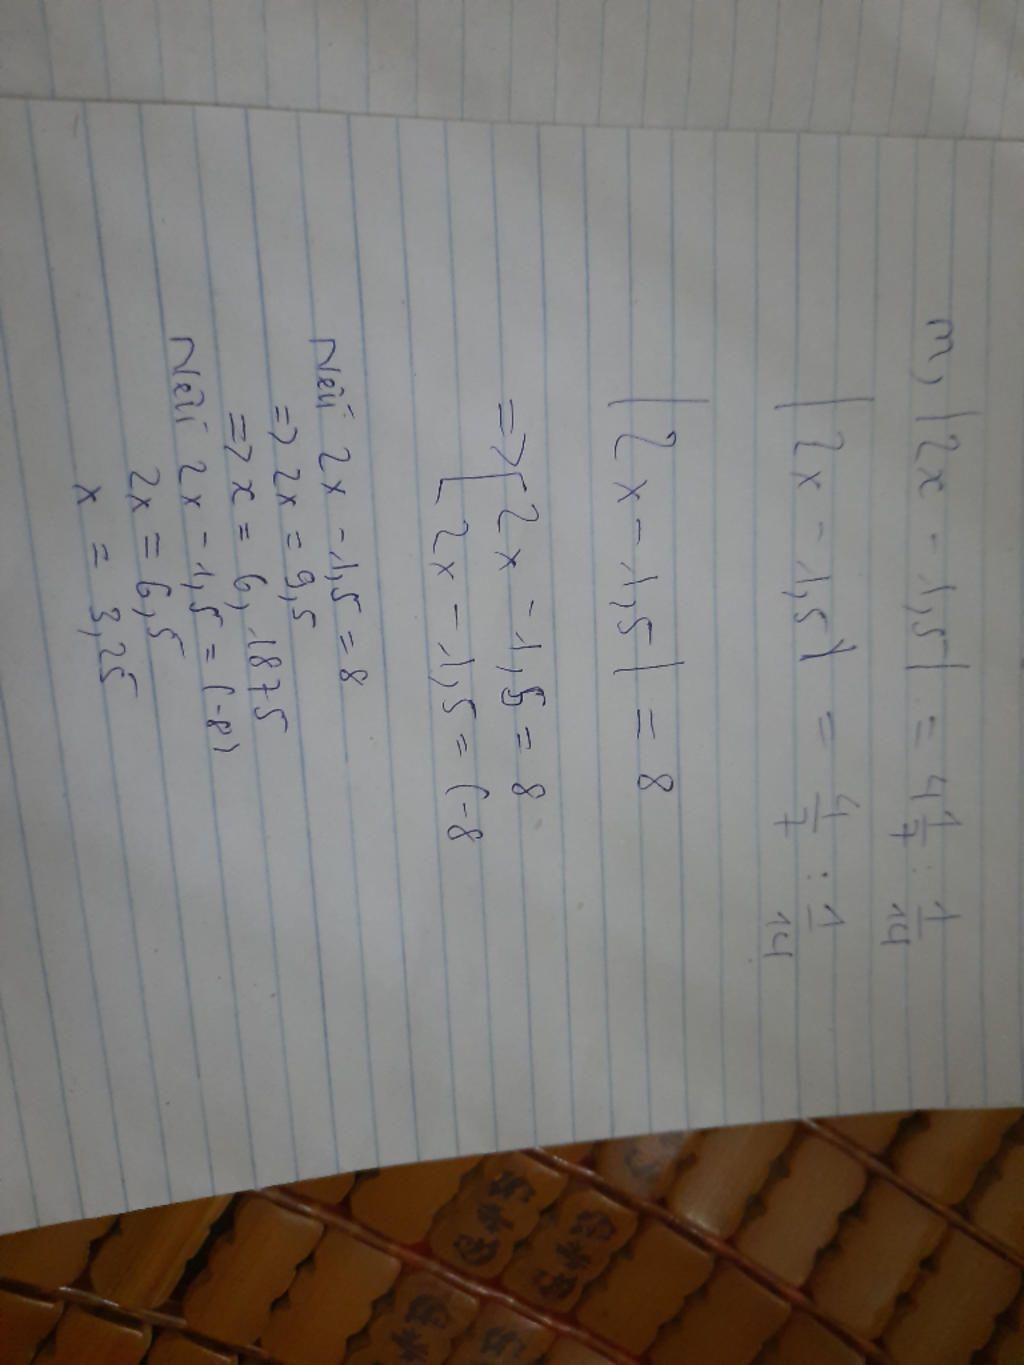 m, |2x - 1,5| = 4 1/7 : 1/14
|2x - 1,5| = 4/7 : 1/14
|2x - 1,5| = 8
=> [2x - 1,5 = 8
[2x - 1,5 = (-8
Nếu 2x - 1,5 = 8
=> 2x = 9,5
=> x = 6,1875
Nếu 2x - 1,5 = (-8)
2x = 6,5
x = 3,25